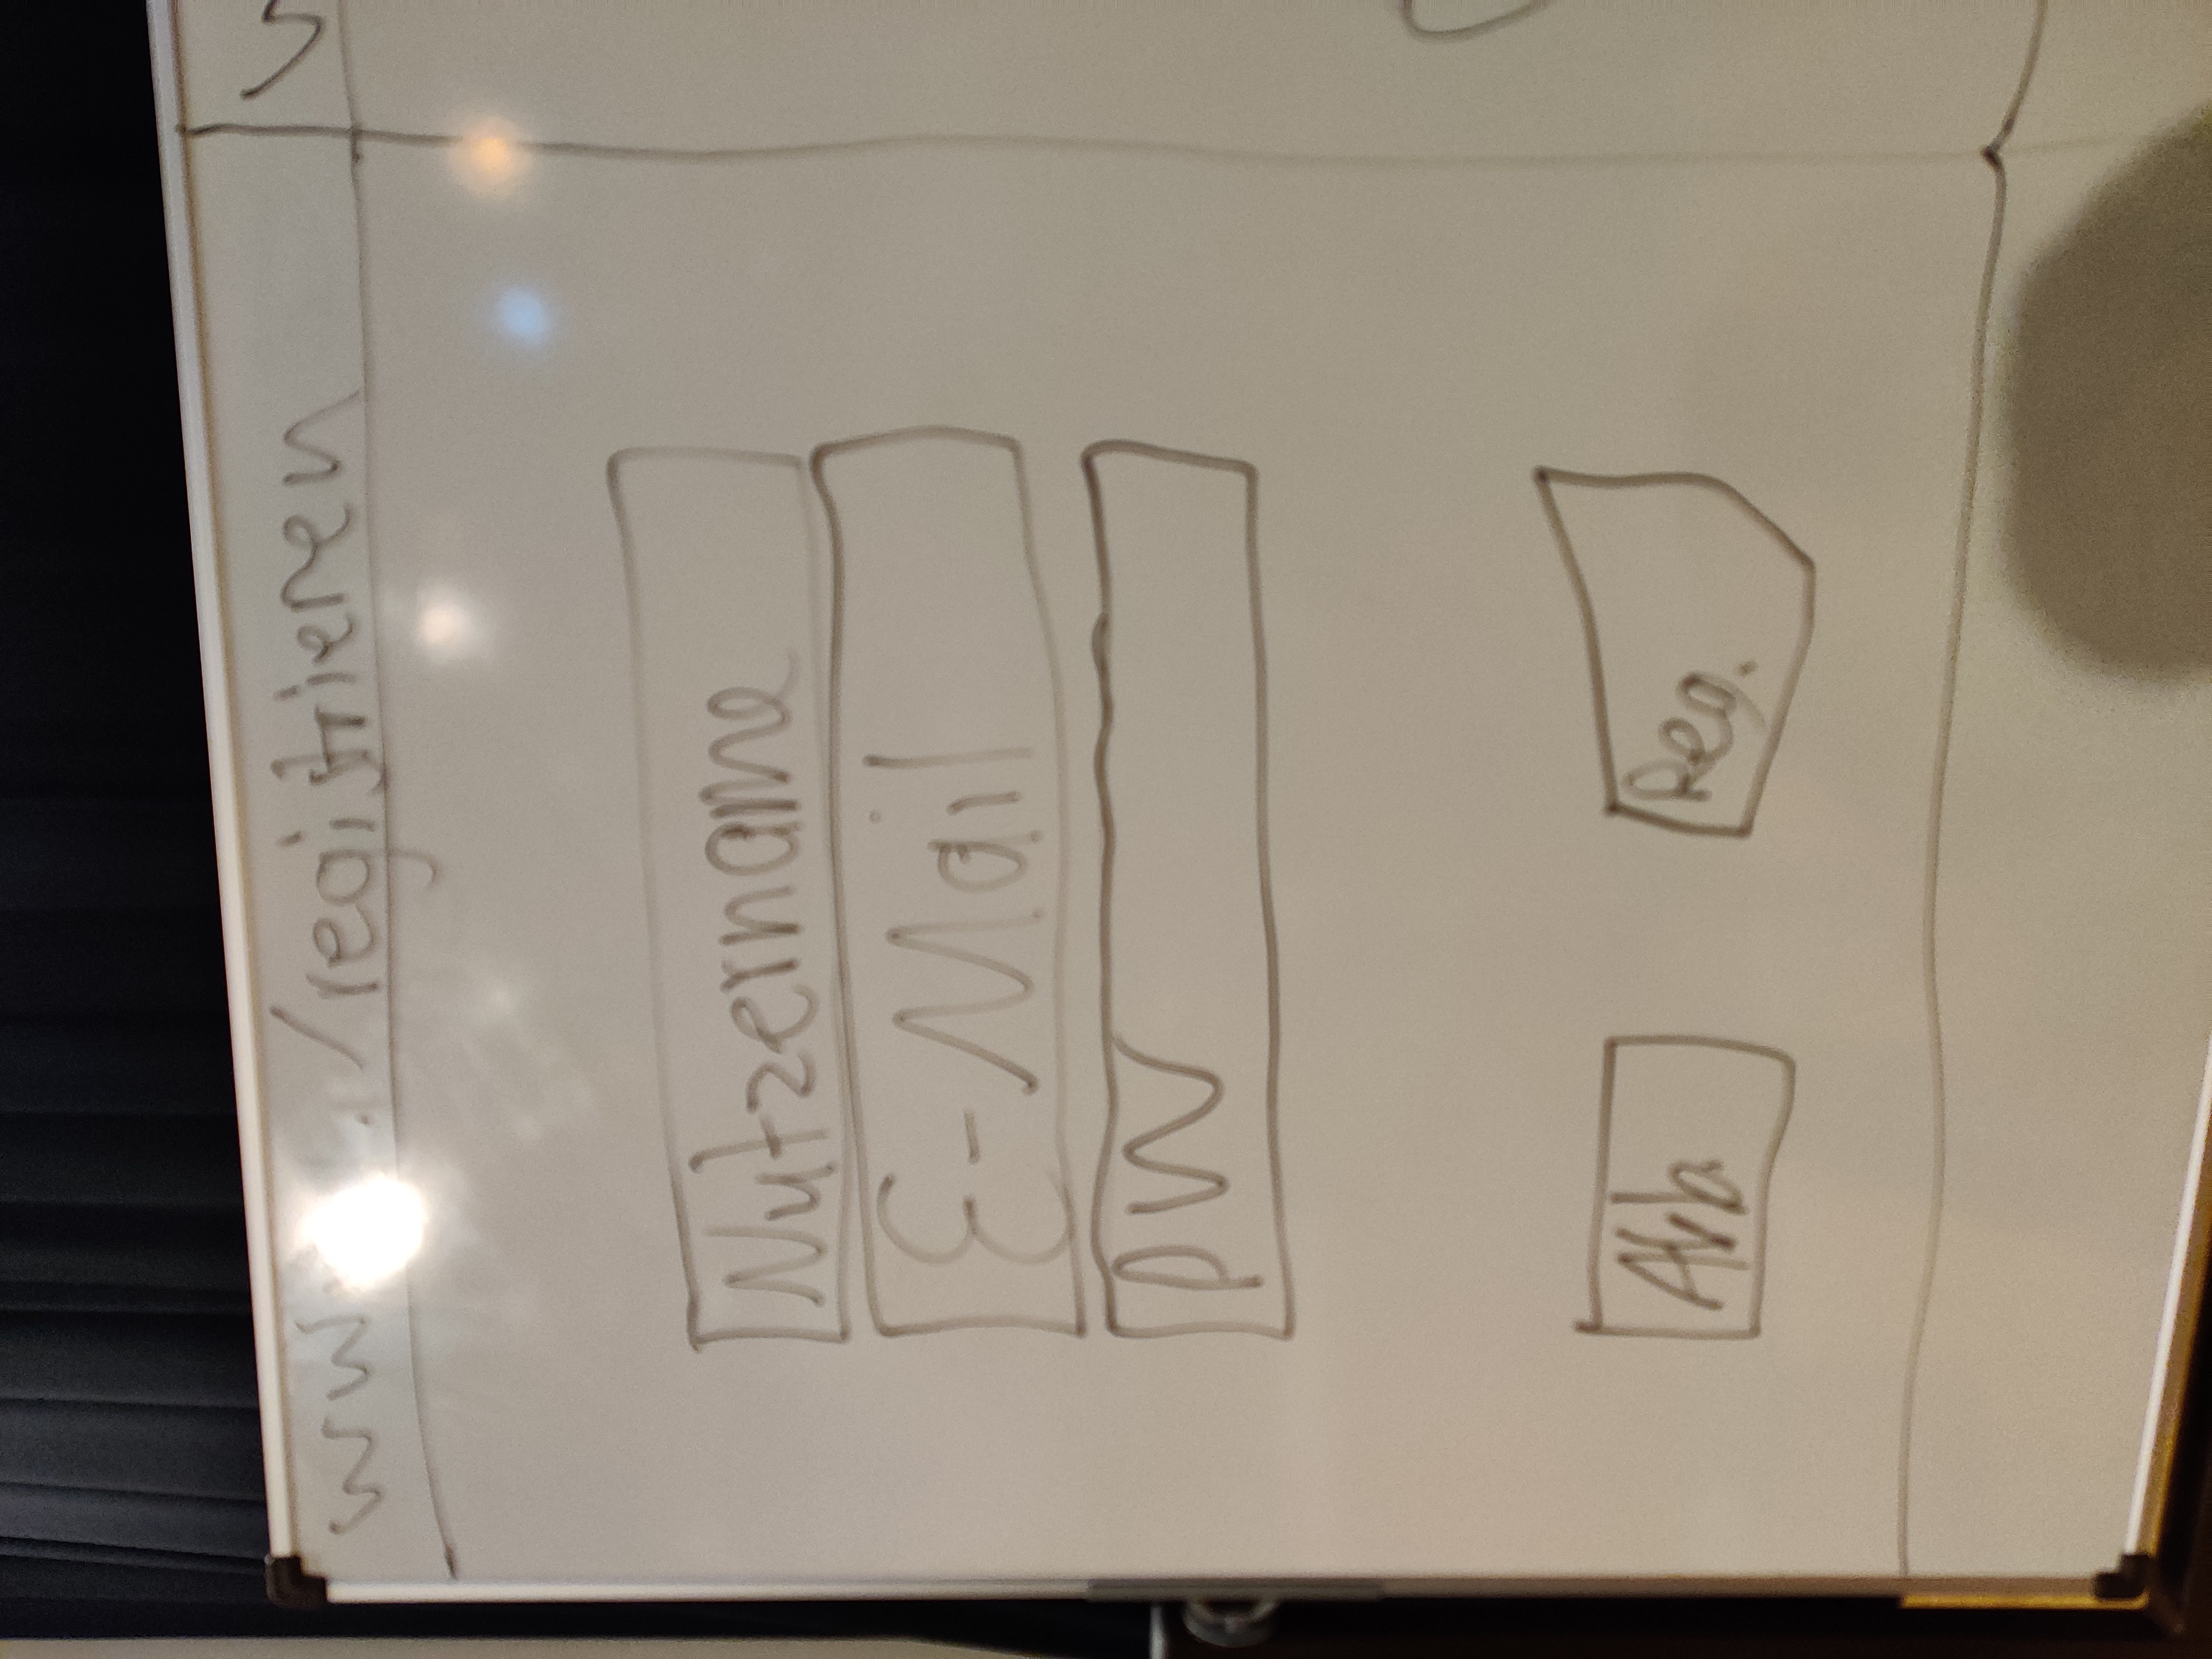 www. . /registrieren
Nutzername
E-Mail
PW
Abb.
Reg.